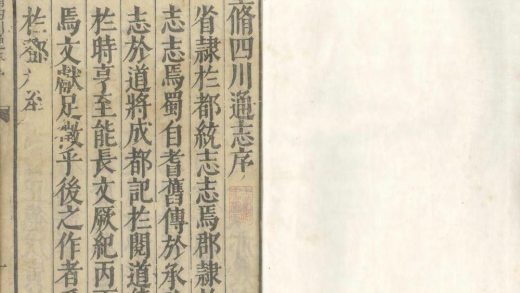 脩四川通志序
省隷扵都統志志焉郡隷扵
志志焉蜀自耆舊傳於承
志於道將成都記扵閱道
扵時亨至能長文厥紀丙
焉文獻足徵乎後之作者
扵鄙